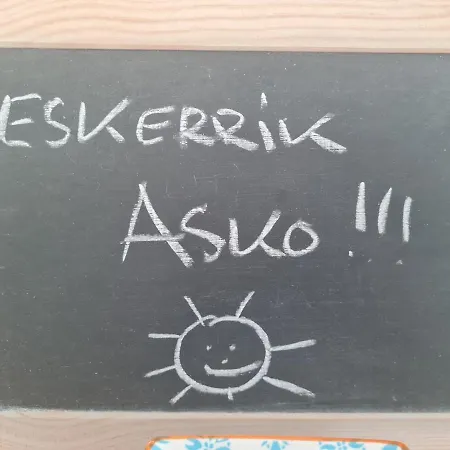 ESKERRIK
ASKO!!!